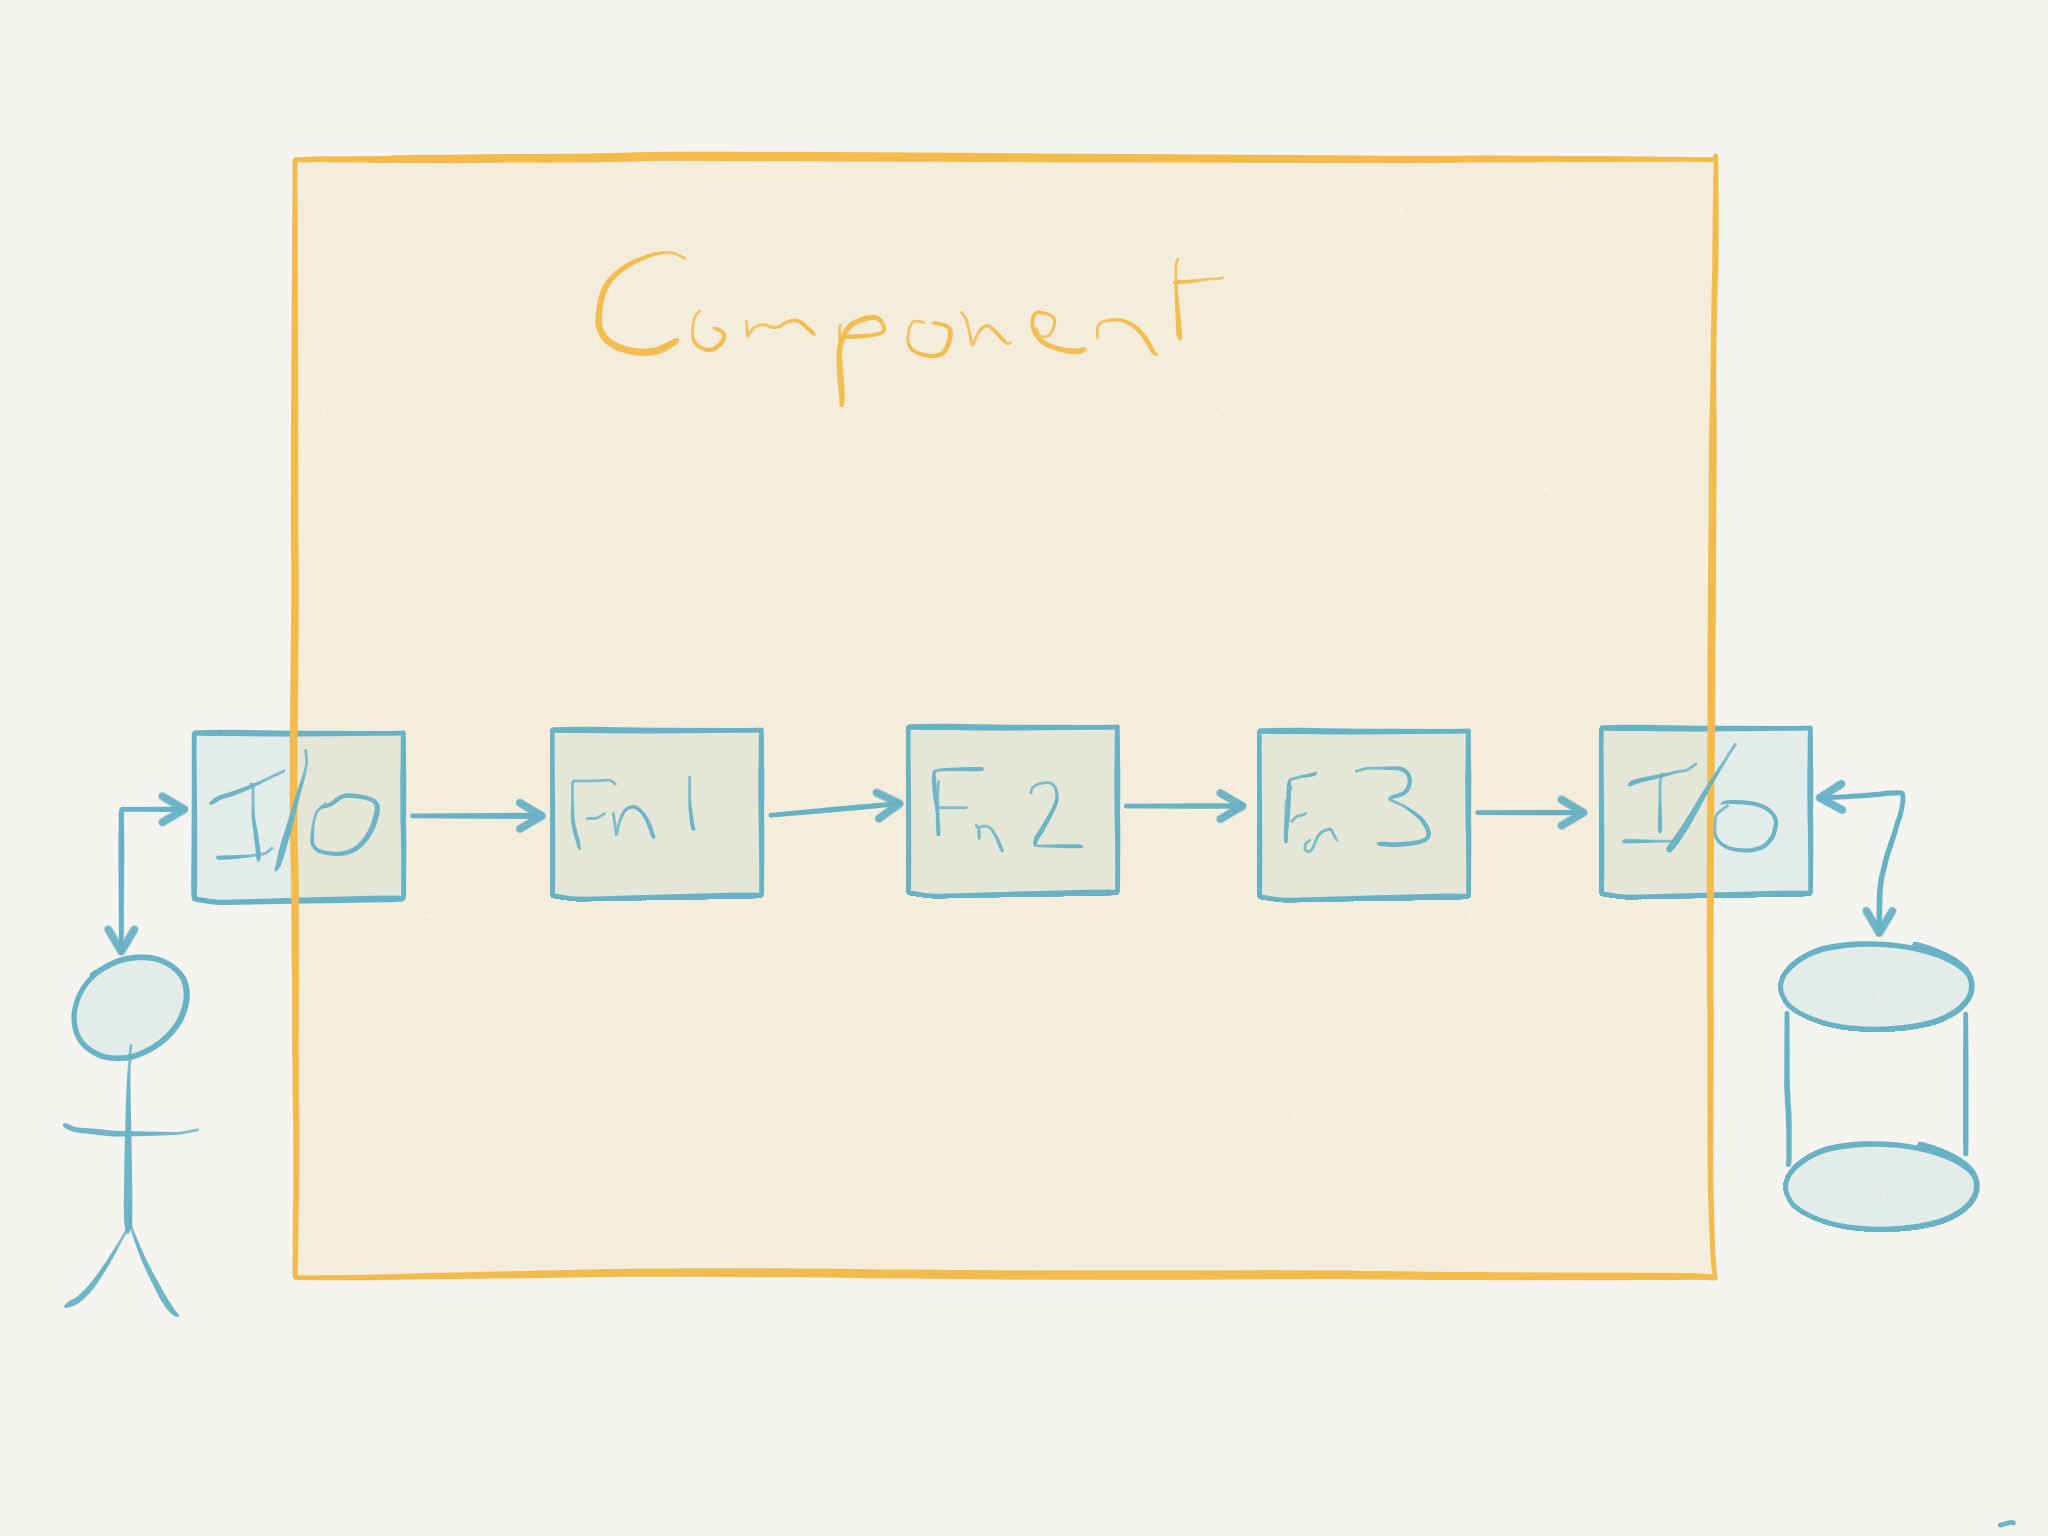 Component
I/O
Fn 1
Fn 2
Fn 3
I/O